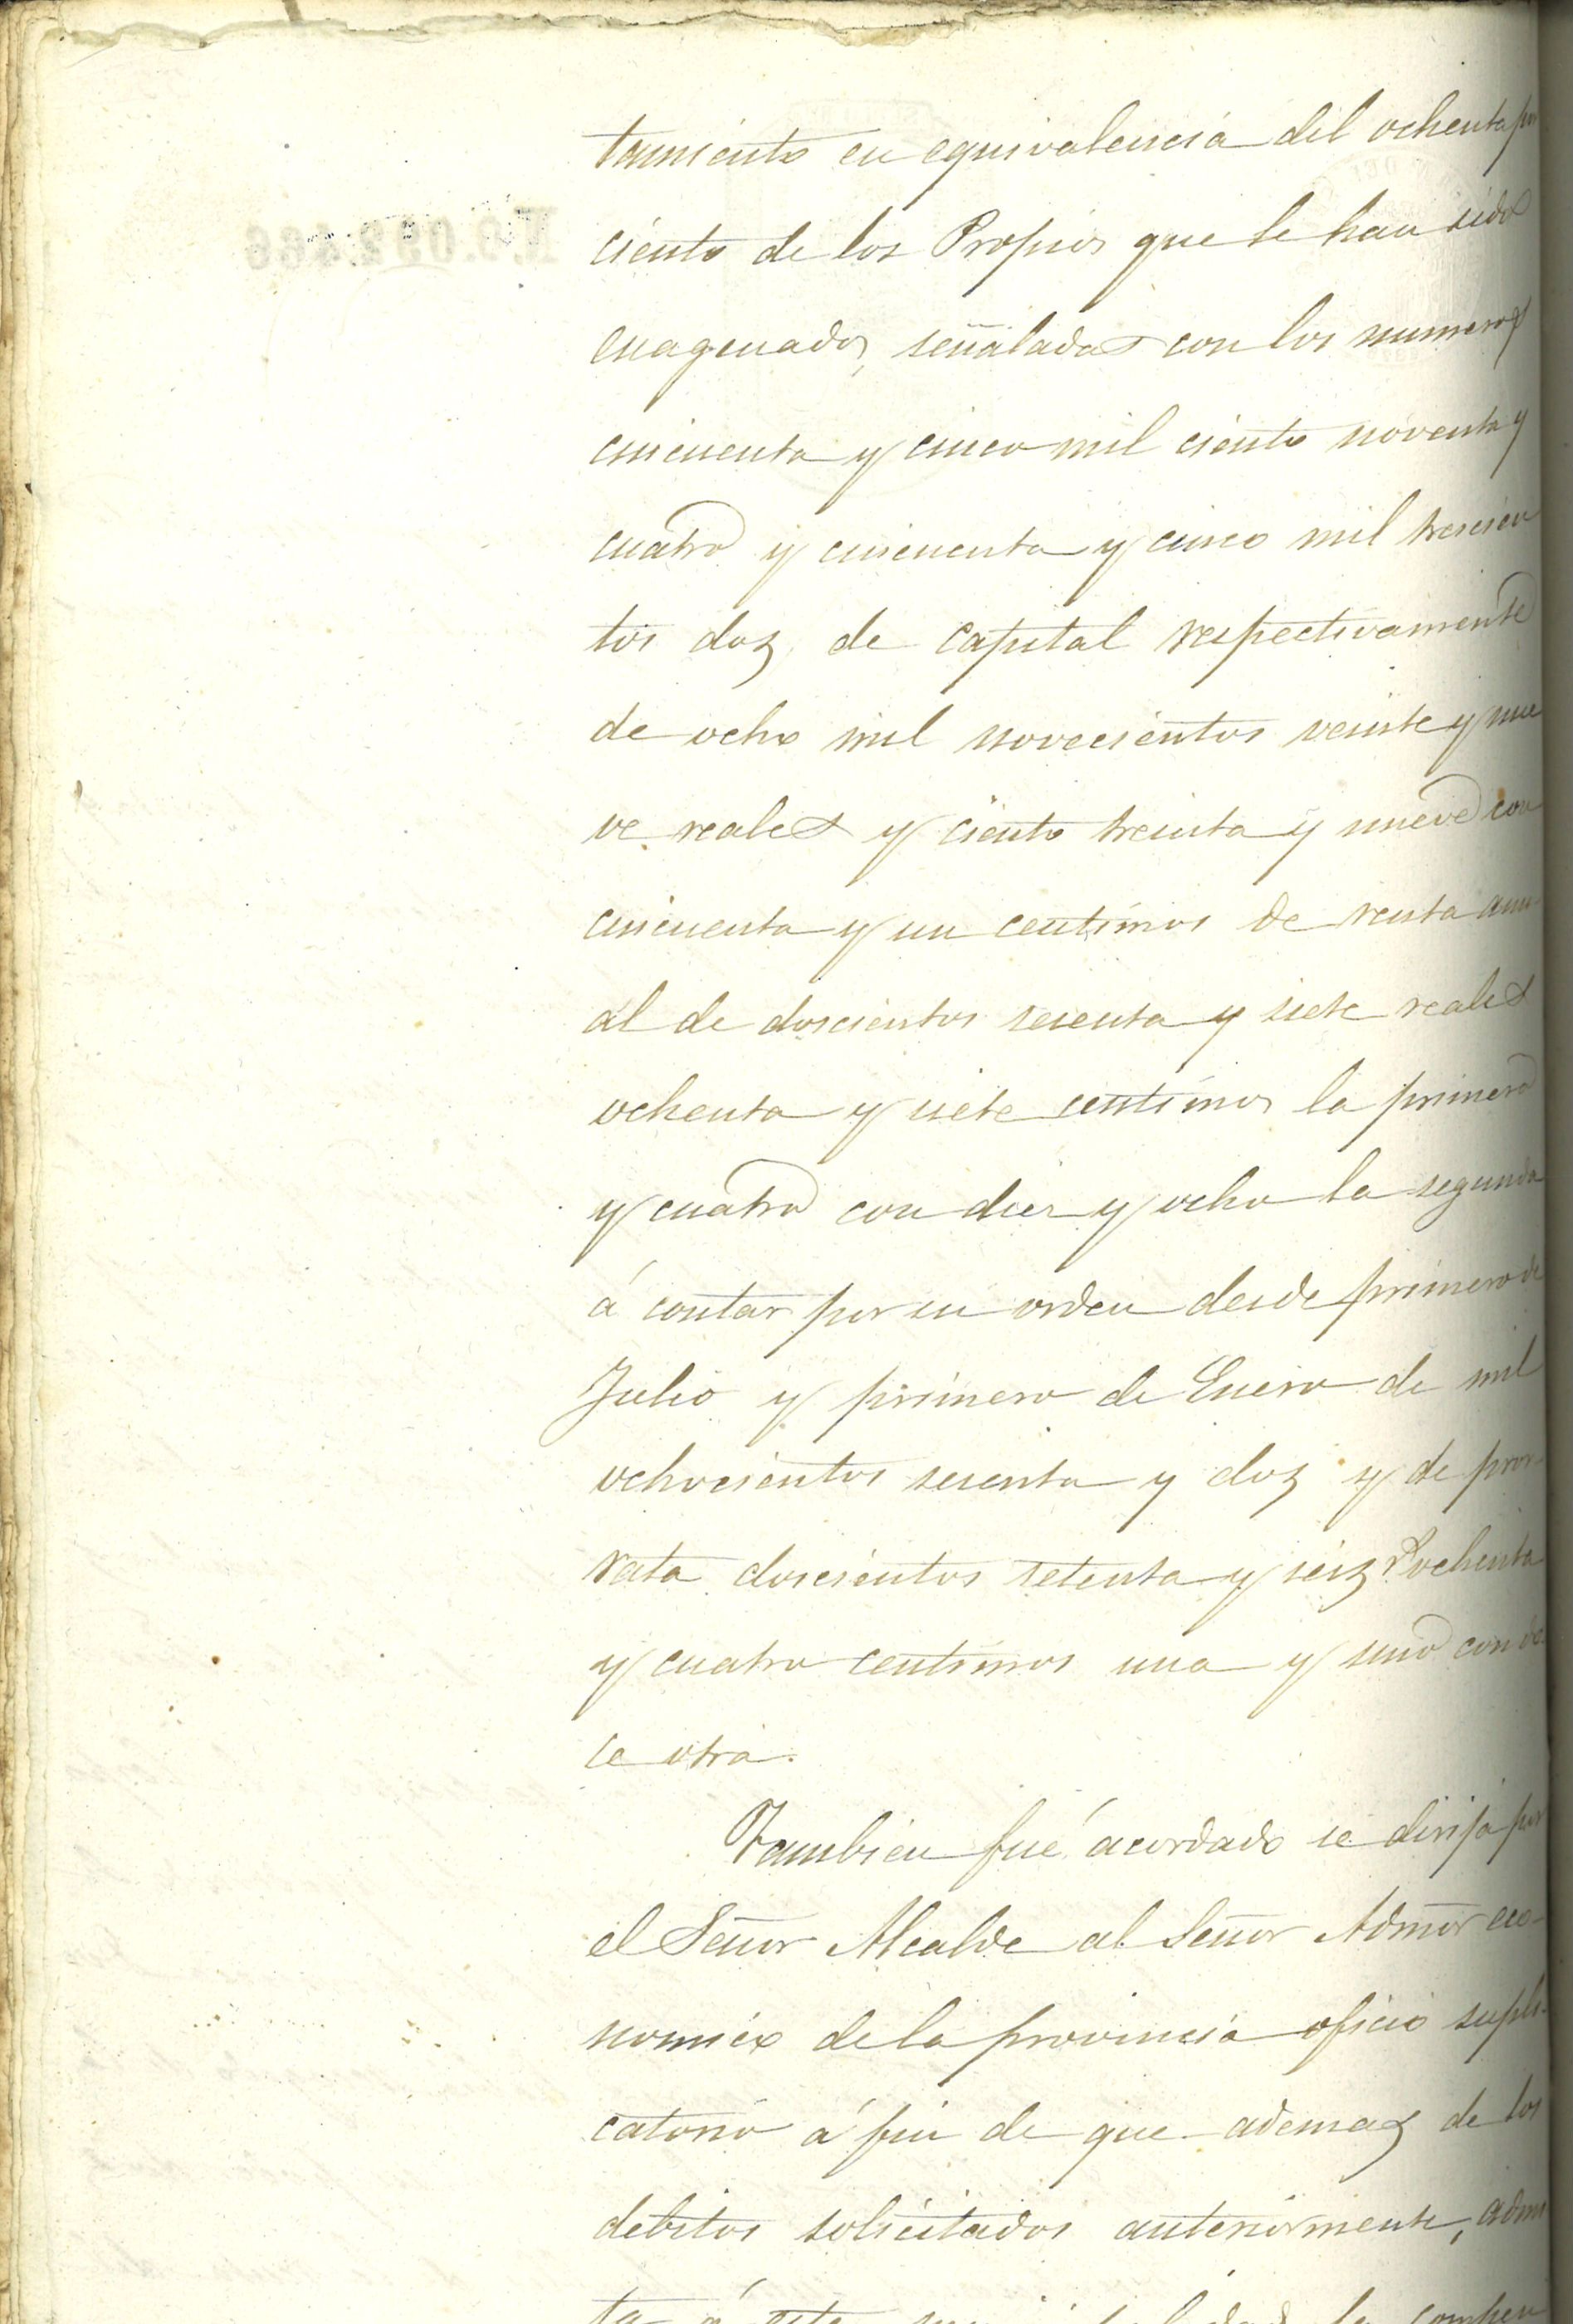 tamiento en equivalencia del ochenta por
ciento de los Propios que le han sido
enagenados, señalados con los numeros
cincuenta y cinco mil ciento noventa y
cuatro y cincuenta y cinco mil trescien
tos doz, de capital respectivamente
de ocho mil novecientos veinte y nue
ve reales y ciento treinta y nueve con
cincuenta y un centimos de renta anu-
al de doscientos sesenta y siete reales
ochenta y siete centimos la primera
y cuatro con diez y ocho la segunda
á contar por su orden desde primero de
Julio y primero de Enero de mil
ochocientos sesenta y doz y de pror-
rata doscientos setenta y seiz rs ochenta
y cuatro centimos una y uno con do
ce otra.
Tambien fué acordado se dirija por
el Señor Alcalde al Señor Admor eco-
nomico de la provincia oficio supli-
catorio á fin de que ademas de los
debitos solicitados anteriormente, admi